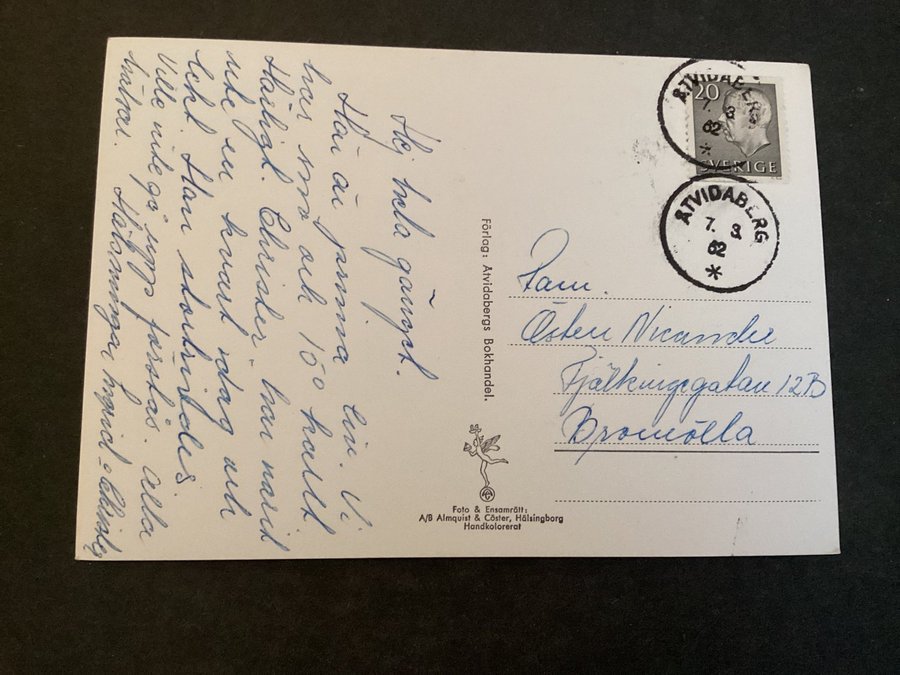 Hej hela gänget.
Här är prima Vi
har snö och 10° kallt
Härligt. Christer har varit
ute en kvart idag och
lekt. Han stortrivdes.
Ville inte gå upp förstås. Alla
hälsar. Hälsningar
Förlag: Åtvidabergs Bokhandel.
Foto & Ensamrätt:
A/B Almquist & Cöster, Hälsingborg
Handkolorerat
20
SVERIGE
ÅTVIDABERG
7. 3
62
*
ÅTVIDABERG
7. 3
62
*
Fam.
Östen Nicander
Fjälkingegatan 12B
Bromölla